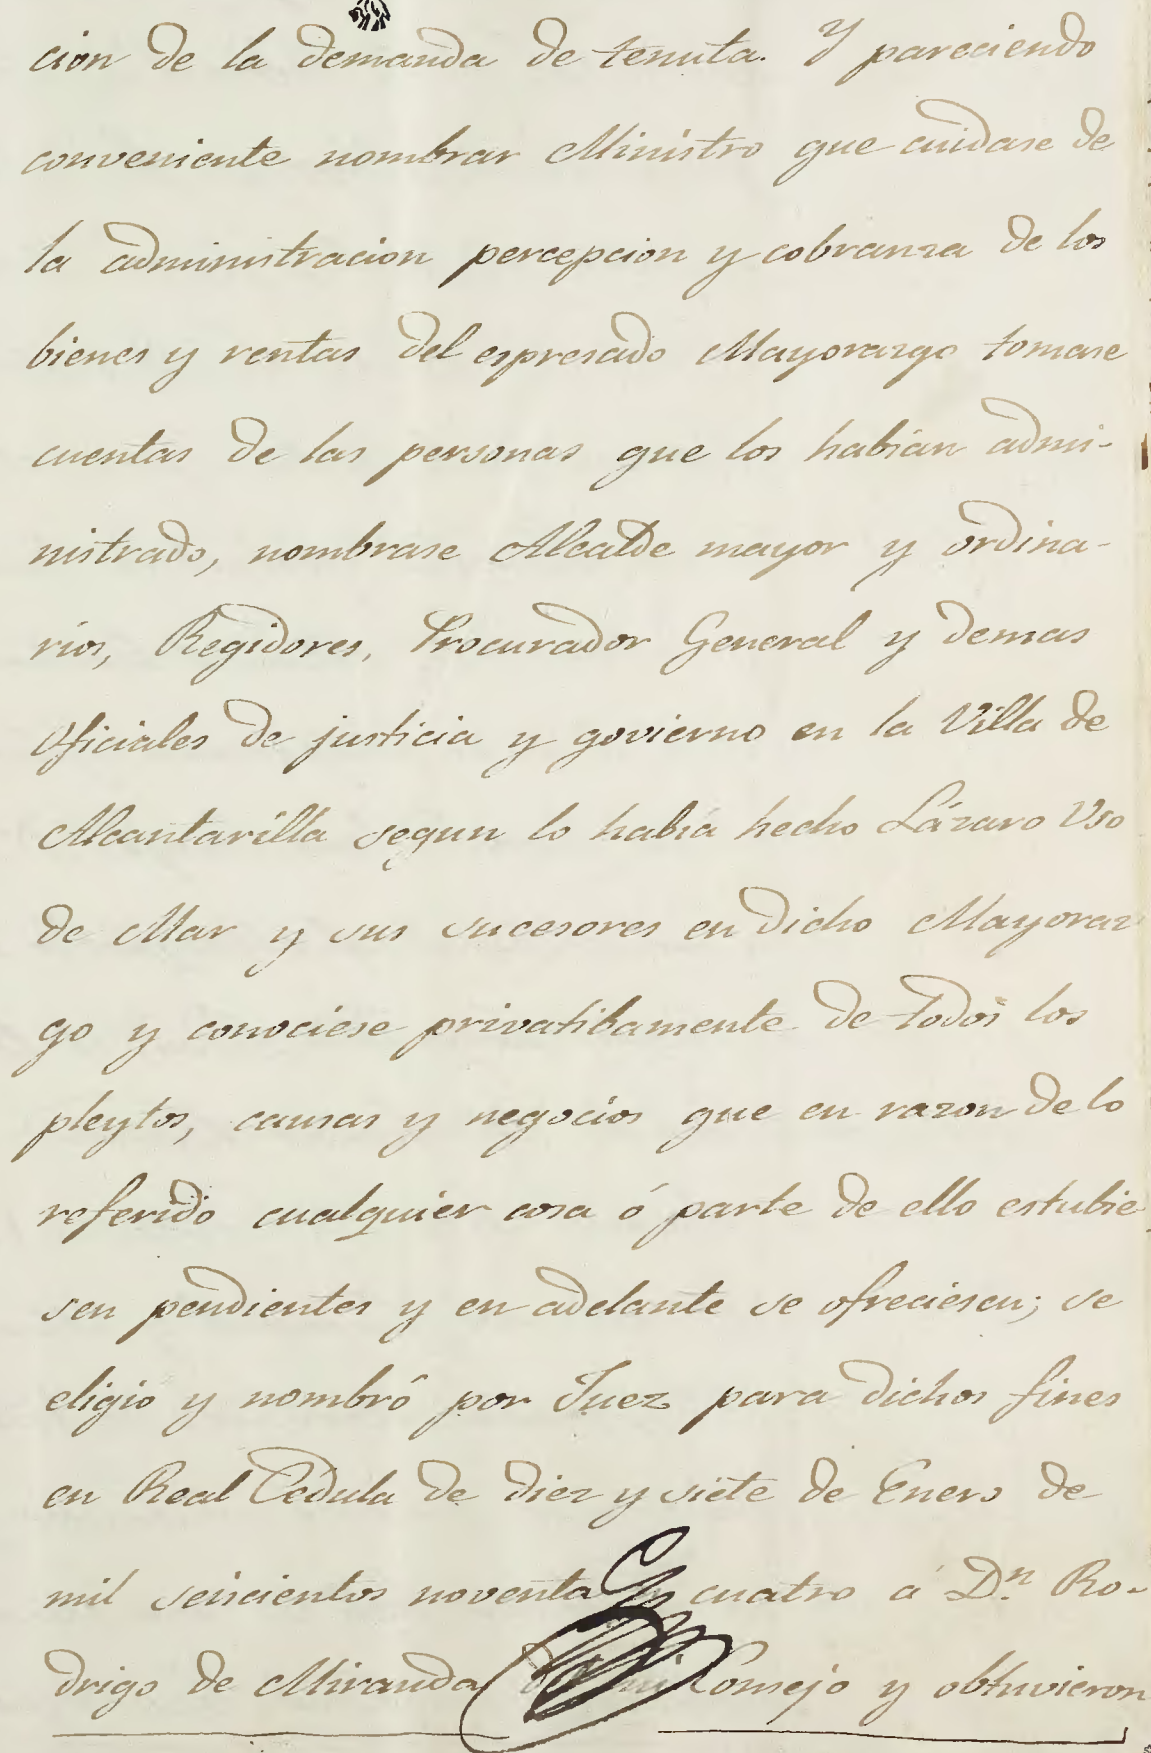 cion de la demanda de tenuta. Y pareciendo
conveniente nombrar Ministro que cuidase de
la administracion percepcion y cobranza de los
bienes y rentas del espresado Mayorazgo tomase
cuentas de las personas que los habian admi-
nistrado, nombrase Alcalde mayor y ordina-
rios, Regidores, Procurador General y demas
Oficiales de justicia y govierno en la Villa de
Alcantarilla segun lo habia hecho Lázaro Uso
de Mar y sus sucesores en dicho Mayoraz
go y conociese privatibamente de todos los
pleytos, causas y negocios que en razon de lo
referido cualquier cosa ó parte de ello estubie
sen pendientes y en adelante se ofreciesen; se
eligió y nombró por Juez para dichos fines
en Real Cédula de diez y siete de Enero de
mil seiscientos noventa y cuatro á Dn. Ro-
drigo de Miranda de mi Consejo y obtuvieron